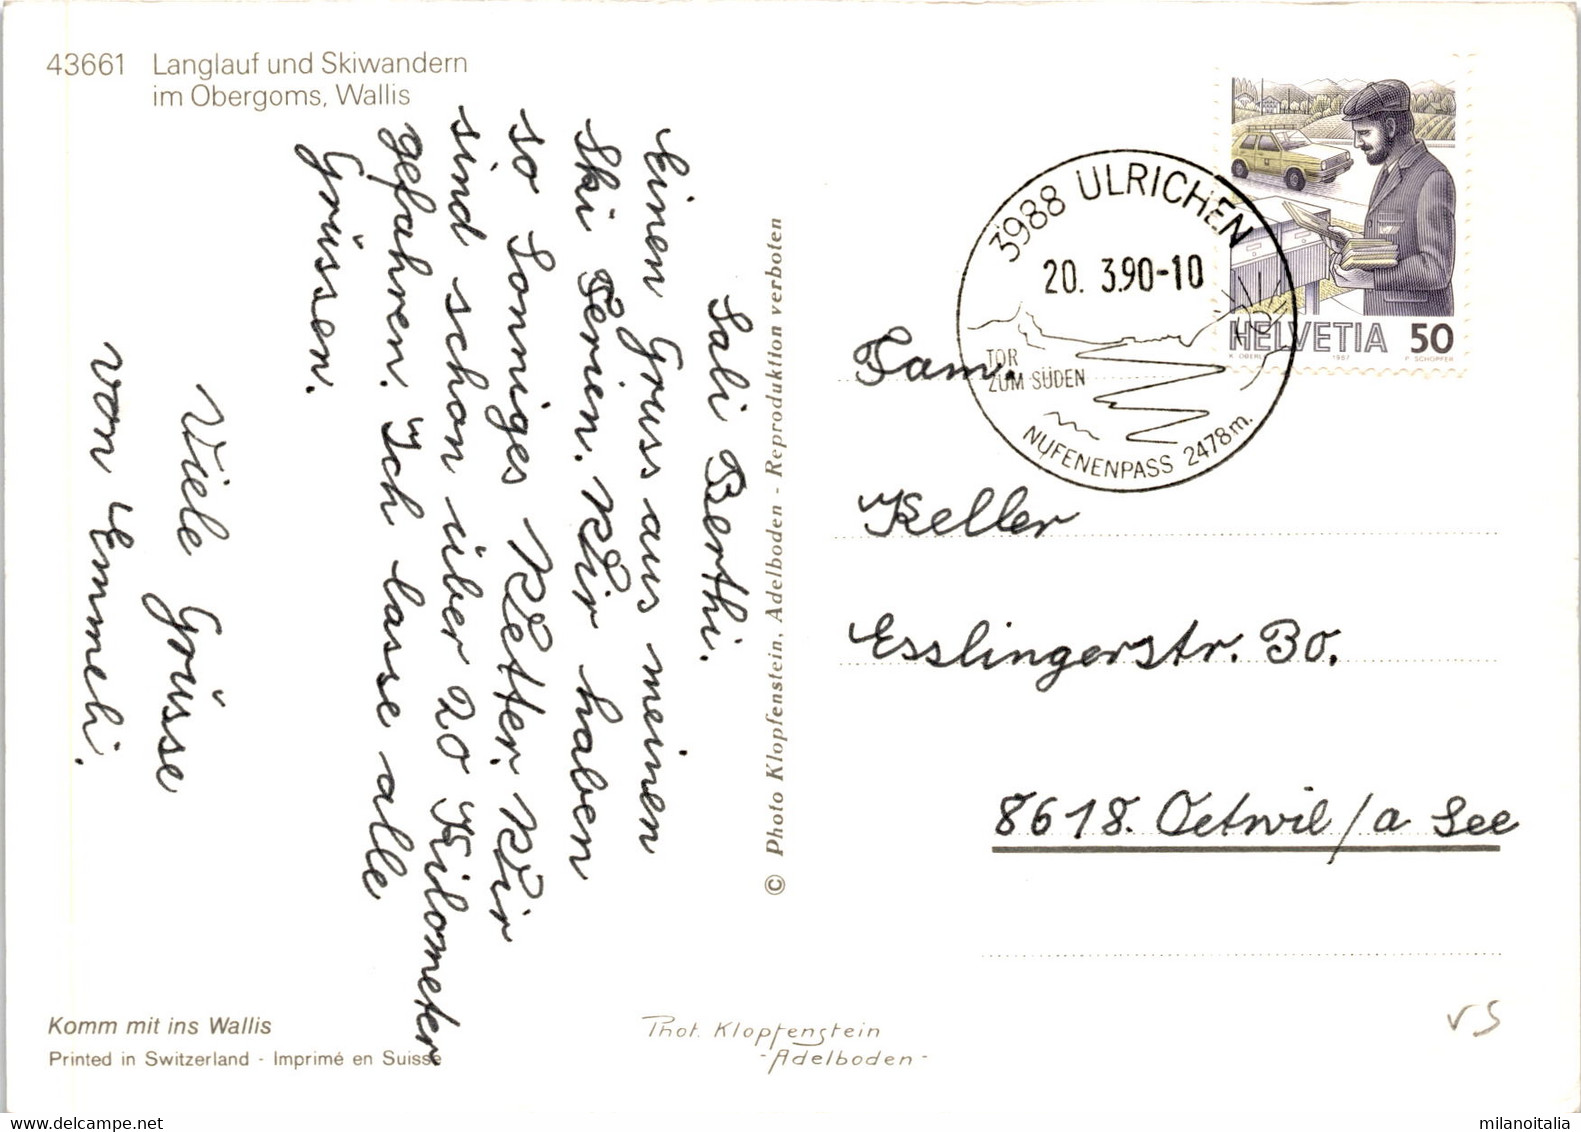 43661 Langlauf und Skiwandern
im Obergoms, Wallis
Sali Berthi.
Einen Gruss aus meinen
Ski Ferien. Wir haben
so Sonniges Wetter. Wir
sind schon über 20 Kilometer
gefahren. Ich lasse alle
Grüssen.
Viele Grüsse
von Emmeli.
© Photo Klopfenstein, Adelboden - Reproduktion verboten
3988 ULRICHEN
20. 3.90-10
TOR
ZUM SÜDEN
NUFENENPASS 2478m.
HELVETIA 50
K. OBERLI 1987 P. SCHOPFER
Fam.
Keller
Esslingerstr. 30.
8618. Oetwil/a See
Komm mit ins Wallis
Printed in Switzerland - Imprimé en Suisse
Phot. Klopfenstein
- Adelboden -
VS
www.delcampe.net
milanoitalia